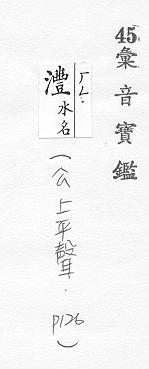 45彙音寶鑑
ㄏㄥ.
灃水名
(公上平聲.p126)